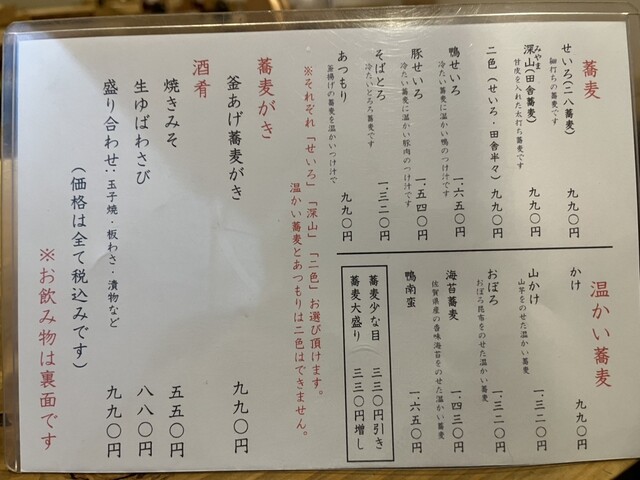 蕎麦
せいろ(二八蕎麦) 九九〇円
細打ちの蕎麦です
みやま
深山(田舎蕎麦) 九九〇円
甘皮を入れた太打ち蕎麦です
二色(せいろ・田舎半々) 九九〇円
鴨せいろ 一、六五〇円
冷たい蕎麦に温かい鴨のつけ汁です
豚せいろ 一、五四〇円
冷たい蕎麦に温かい豚肉のつけ汁です
そばとろ 一、三二〇円
冷たいとろろ蕎麦です
あつもり 九九〇円
釜揚げの蕎麦を温かいつけ汁で
温かい蕎麦
かけ 九九〇円
山かけ 一、三二〇円
山芋をのせた温かい蕎麦
おぼろ 一、三二〇円
おぼろ昆布をのせた温かい蕎麦
海苔蕎麦 一、四三〇円
佐賀県産の香味海苔をのせた温かい蕎麦
鴨南蛮 一、六五〇円
蕎麦少な目 三三〇円引き
蕎麦大盛り 三三〇円増し
※それぞれ「せいろ」「深山」「二色」お選び頂けます。
温かい蕎麦とあつもりは二色はできません。
蕎麦がき
釜あげ蕎麦がき 九九〇円
酒肴
焼きみそ 五五〇円
生ゆばわさび 八八〇円
盛り合わせ:玉子焼・板わさ・漬物など 九九〇円
(価格は全て税込みです)
※お飲み物は裏面です